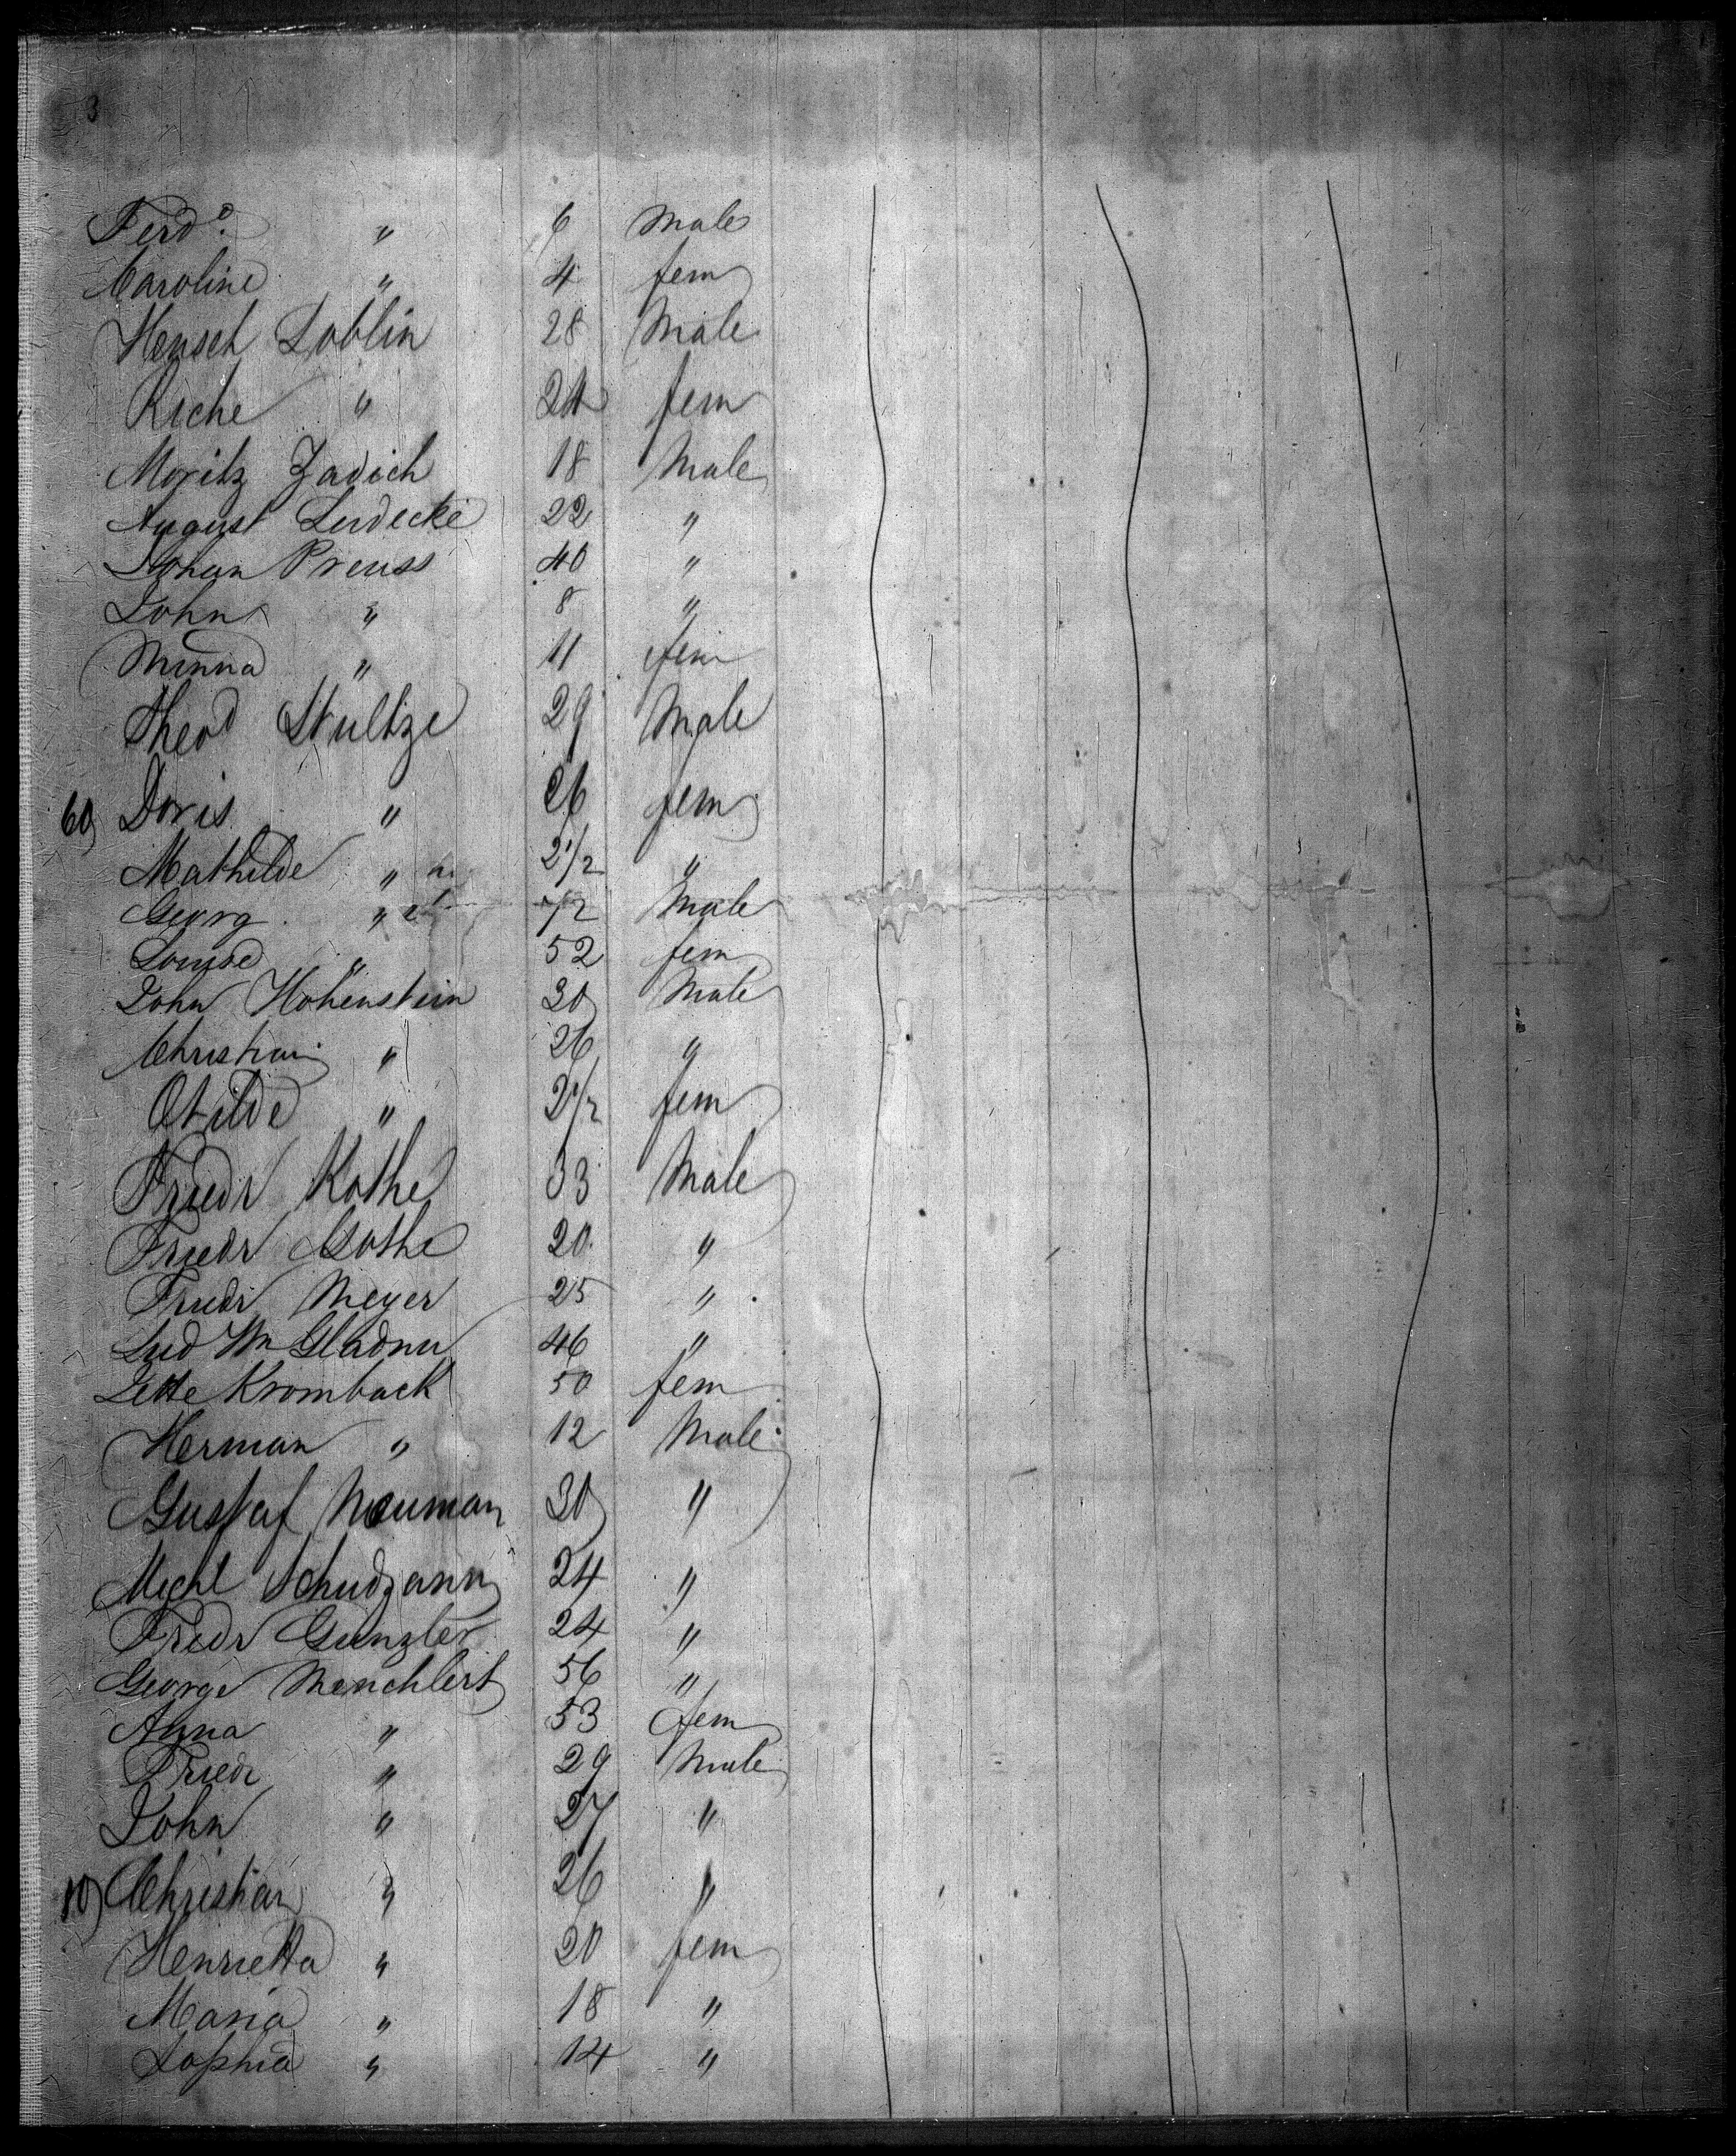 3
Ferdo. " 6 Male
Caroline " 4 fem
Hensch Loblin 28 Male
Riche " 24 fem
Moritz Zadich 18 Male
August Ludecke 22 "
Johan Preuss 40 "
John " 8 "
Minna " 11 fem
Theod Stultze 29 Male
60) Doris " 26 fem
Mathilde " 2 1/2 "
Georg " /2 Male
Louise " 52 fem
John Hohenstein 30 Male
Christian " 26 "
Otilde " 2 1/2 fem
Friedr Kothe 33 Male
Friedr Gothe 20 "
Friedr Meyer 25 "
Lud Wm Gladnu 46 "
Jette Kromback 50 fem
Herman " 12 Male
Gustaf Neuman 30 "
Michl Schudzann 24 "
Friedr Gunzler 24 "
George Menchlert 56 "
Anna " 53 fem
Friedr " 29 Male
John " 27 "
10) Christian " 26 "
Henrietta " 20 fem
Maria " 18 "
Sophia " 14 "